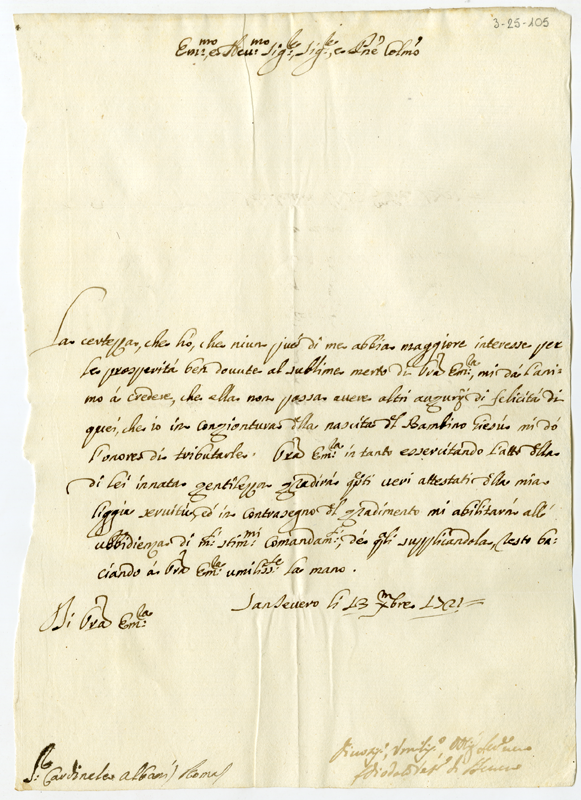 3-25-105
Em.mo, e Reu.mo Sig.re, Sig.re, e Pne Colmo
La certezza, che hò, che niun può di me abbia maggiore interesse per
le prosperità ben douute al sublime merto di Vra Em.za, mi dà l'ani-
mo à credere, che ella non possa auere altri augurÿ di felicità di
quei, che io in congiontura della nascita del Bambino Giesù mi dò
l'onore di tributarle. Vra Em.za in tanto essercitando l'atto della
di lei innata gentilezza gradirà questi ueri attestati della mia
liggia seruitù, ed in contrasegno del gradimento mi abilitarà all'
ubbidienza di suoi stim.mi comandam.ti, de quali supplicandola, resto ba-
ciando à Vra Em.za umiliss.te la mano.
Di Vra Em.za
SanSeuero li 13 Xmbre 1721
S.r Cardinale Albani Roma
di